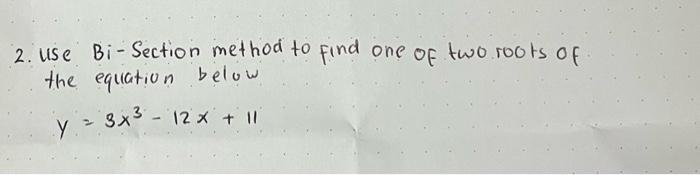 2. use Bi-Section method to find one of two roots of
the equation below
y = 3x³ - 12x + 11